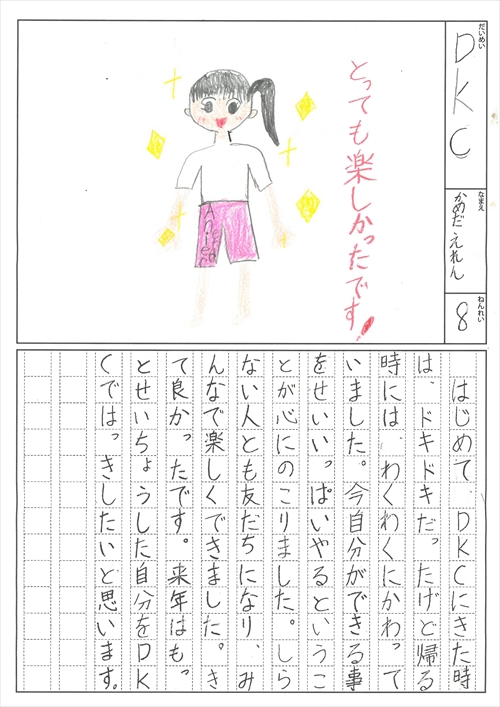 だいめい
DKC
なまえ
かめだ えれん
ねんれい
8
とっても楽しかったです!
はじめて、DKCにきた時
は、ドキドキだったけど帰る
時には、わくわくにかわって
いました。今自分ができる事
をせいいっぱいやるというこ
とが心にのこりました。しら
ない人とも友だちになり、み
んなで楽しくできました。き
て良かったです。来年はもっ
とせいちょうした自分をDK
Cではっきしたいと思います。